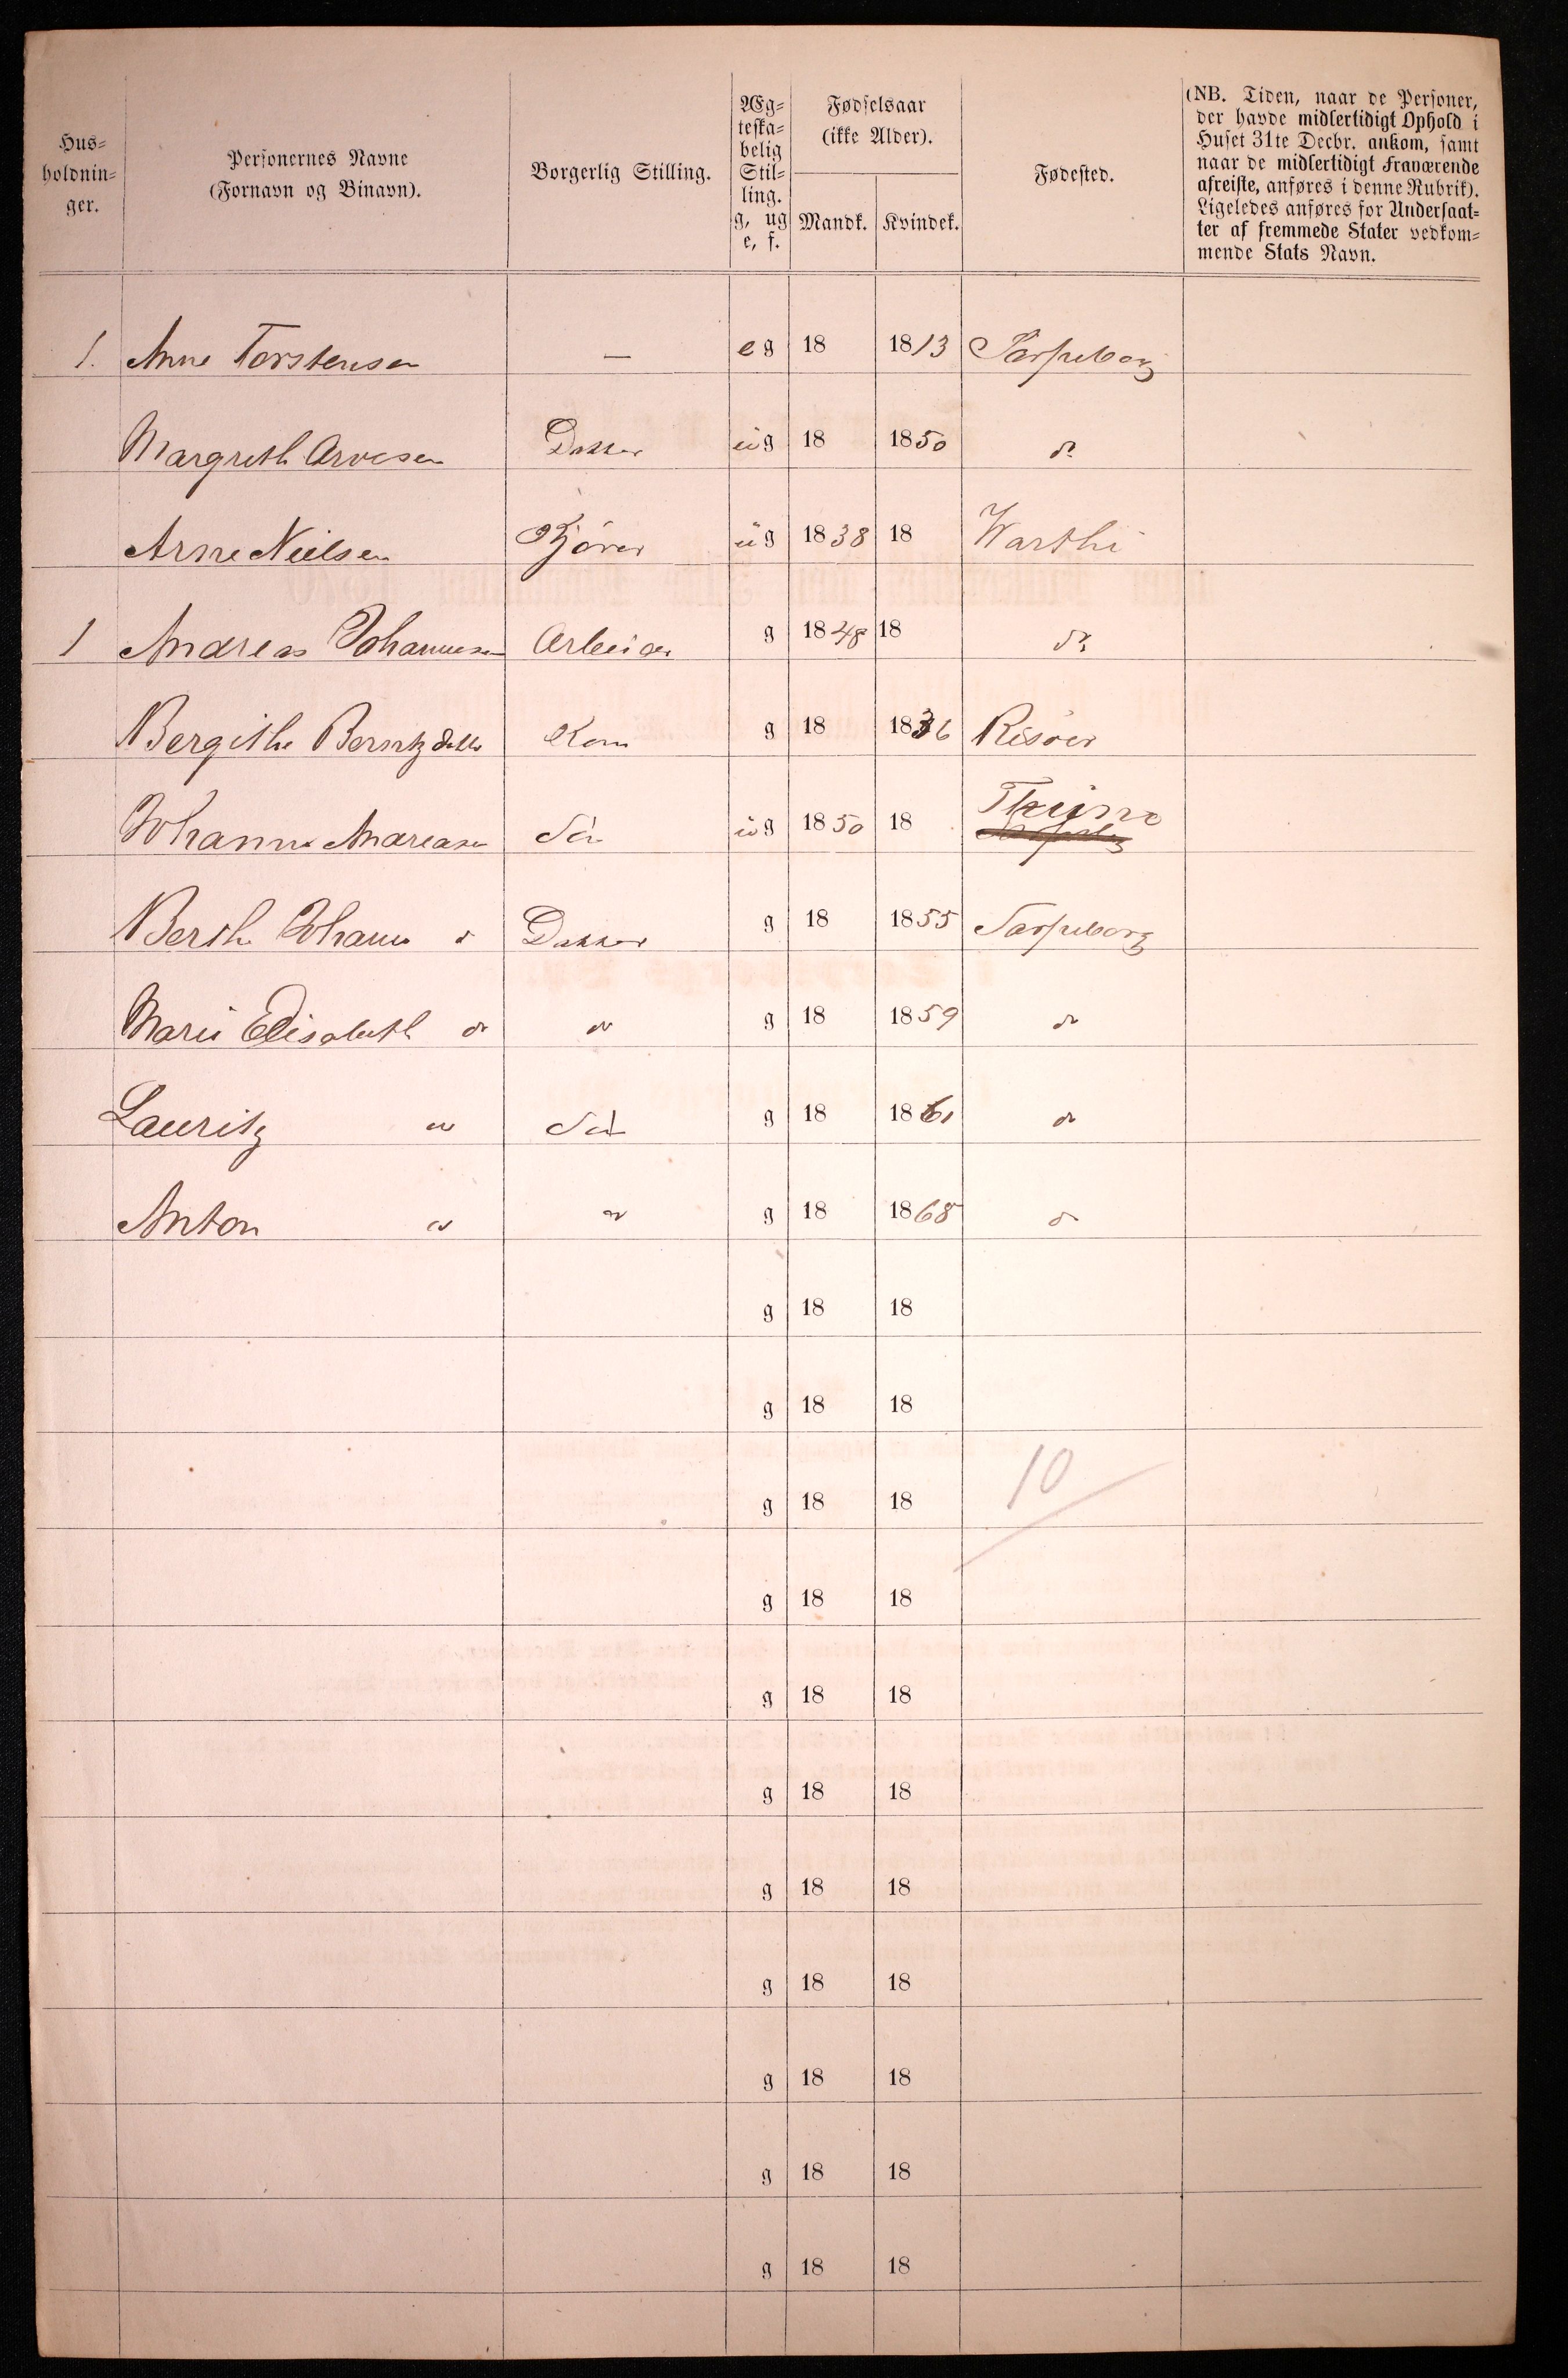 Hus-
holdnin-
ger.
Personernes Navne
(Fornavn og Binavn).
Borgerlig Stilling.
Æg-
teska-
belig
Stil-
ling.
g, ug
e, f.
Fødselsaar
(ikke Alder).
Mandk. Kvindek.
Fødested.
(NB. Tiden, naar de Personer,
der havde midlertidigt Ophold i
Huset 31te Decbr. ankom, samt
naar de midlertidigt Fraværende
afreiste, anføres i denne Rubrik).
Ligeledes anføres for Undersaat-
ter af fremmede Stater vedkom-
mende Stats Navn.
1. Anne Torstensen — e g 18 1813 Sarpsborg
Margreth Arvesen Datter ug 18 1850 do
Arne Nielsen Kjører ug 1838 18 Warthi
1 Andreas Johannesen Arbeider g 1848 18 do
Bergithe Berntzdatter Kone g 18 1836 Risöer
Johannes Andreasen Sön ug 1850 18 Thune
Berthe Johanne d Datter g 18 1855 Sarpsborg
Marie Elisabeth do do g 18 1859 do
Lauritz do Sön g 18 1861 do
Anton do do g 18 1868 do
g 18 18
g 18 18
g 18 18 10
g 18 18
g 18 18
g 18 18
g 18 18
g 18 18
g 18 18
g 18 18
g 18 18